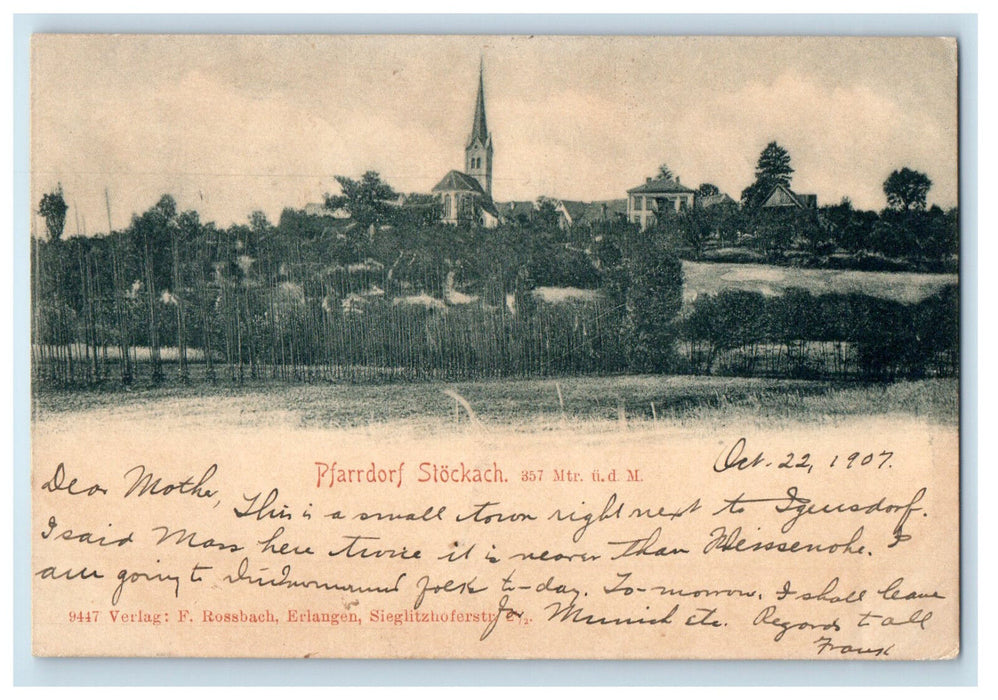 Pfarrdorf Stöckach. 357 Mtr. ü. d. M.
Oct. 22, 1907.
Dear Mother,
This is a small town right next to Igensdorf.
I said Mass here twice it is nearer than Weissenohe. I
am going to visit folk to-day. To-morrow, I shall leave
for Munich etc. Regards to all
Frank
9447 Verlag: F. Rossbach, Erlangen, Sieglitzhoferstr. 2½.